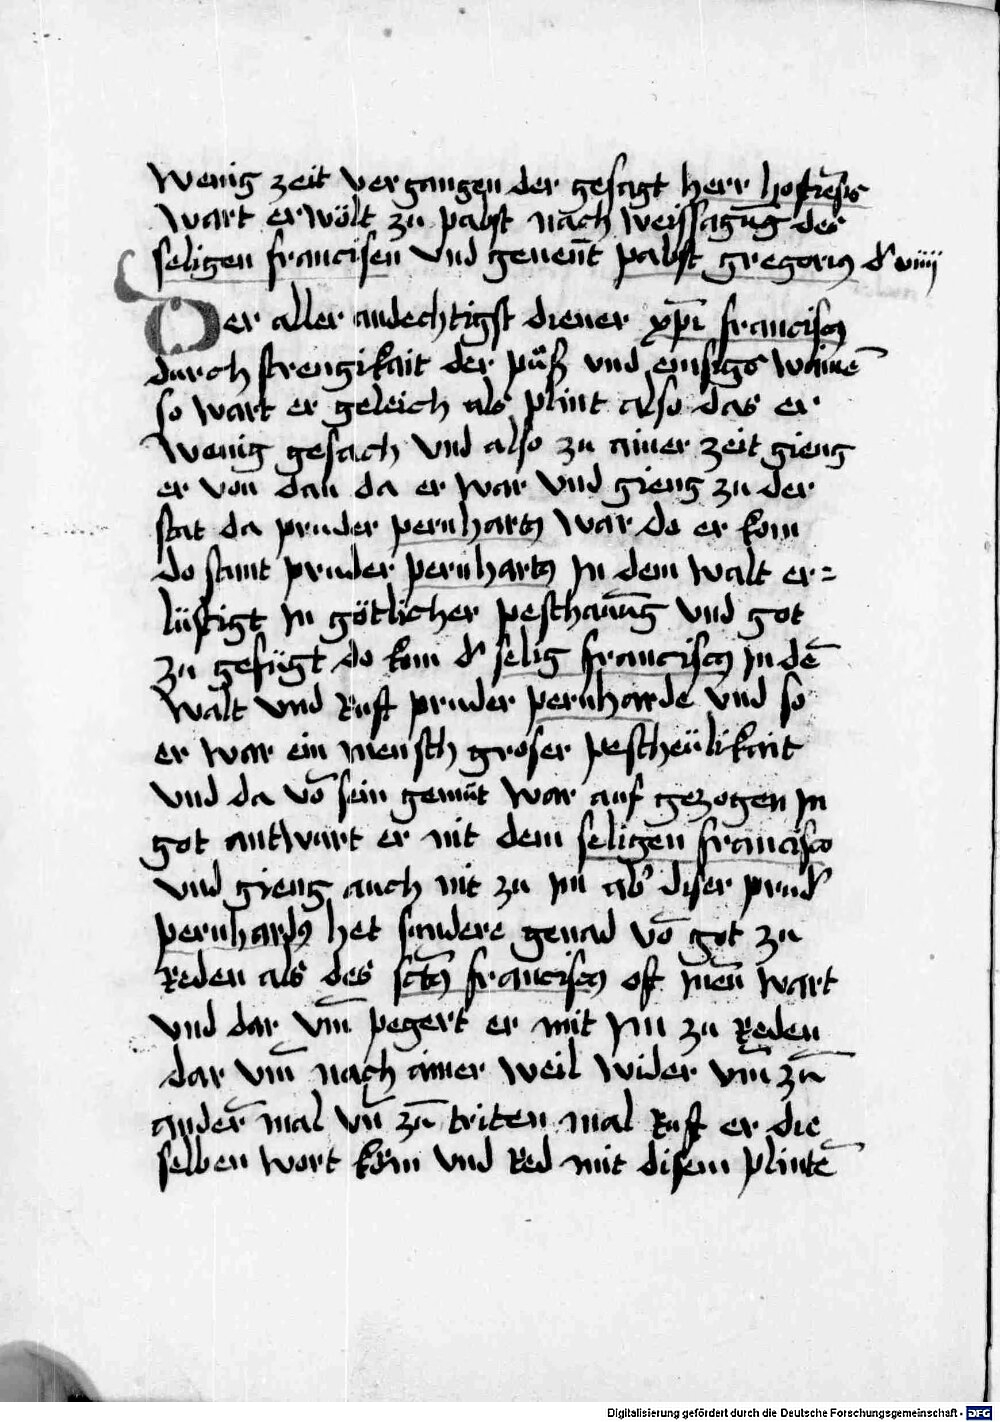 wenig zeit vergangen der gesagt herr hostiēsis
wart erwölt zu pabst nach weissagūg des
seligen francisen vnd genen̄t pabst gregorius d' viiij
Der aller andechtigst diener xp̄i franciscus
durch strengikait der půß vnd emsigs wainē
so wart er geleich als plint also das er
wenig gesach vnd also zu ainer zeit gieng
er von dan da er war vnd gieng zu der
stat da pruder pernhartus war do er kom
do stunt pruder pernhartus In dem walt er=
lüstigt In götlicher peschauūg vnd got
zu gefügt do kom d' selig franciscus In dē
walt vnd Ruft pruder pernharde vnd so
er war ein mensch groser pescheülikait
vnd da vō sein gemüt war auf gezogen In
got antwurt er nit dem seligen francisco
vnd gieng auch nit zu Im ab' diser prud'
pernhardus het sundere genad vō got zu
Reden als des sctūs franciscus oft Inen̄ wart
vnd dar vm̄ pegert er mit Im zu Reden
dar vm̄ nach ainer weil wider vm̄ zū
ander̄ mal vn̄ zū triten mal Ruft er die
selben wort kom vnd Red mit disem plintē
Digitalisierung gefördert durch die Deutsche Forschungsgemeinschaft - DFG